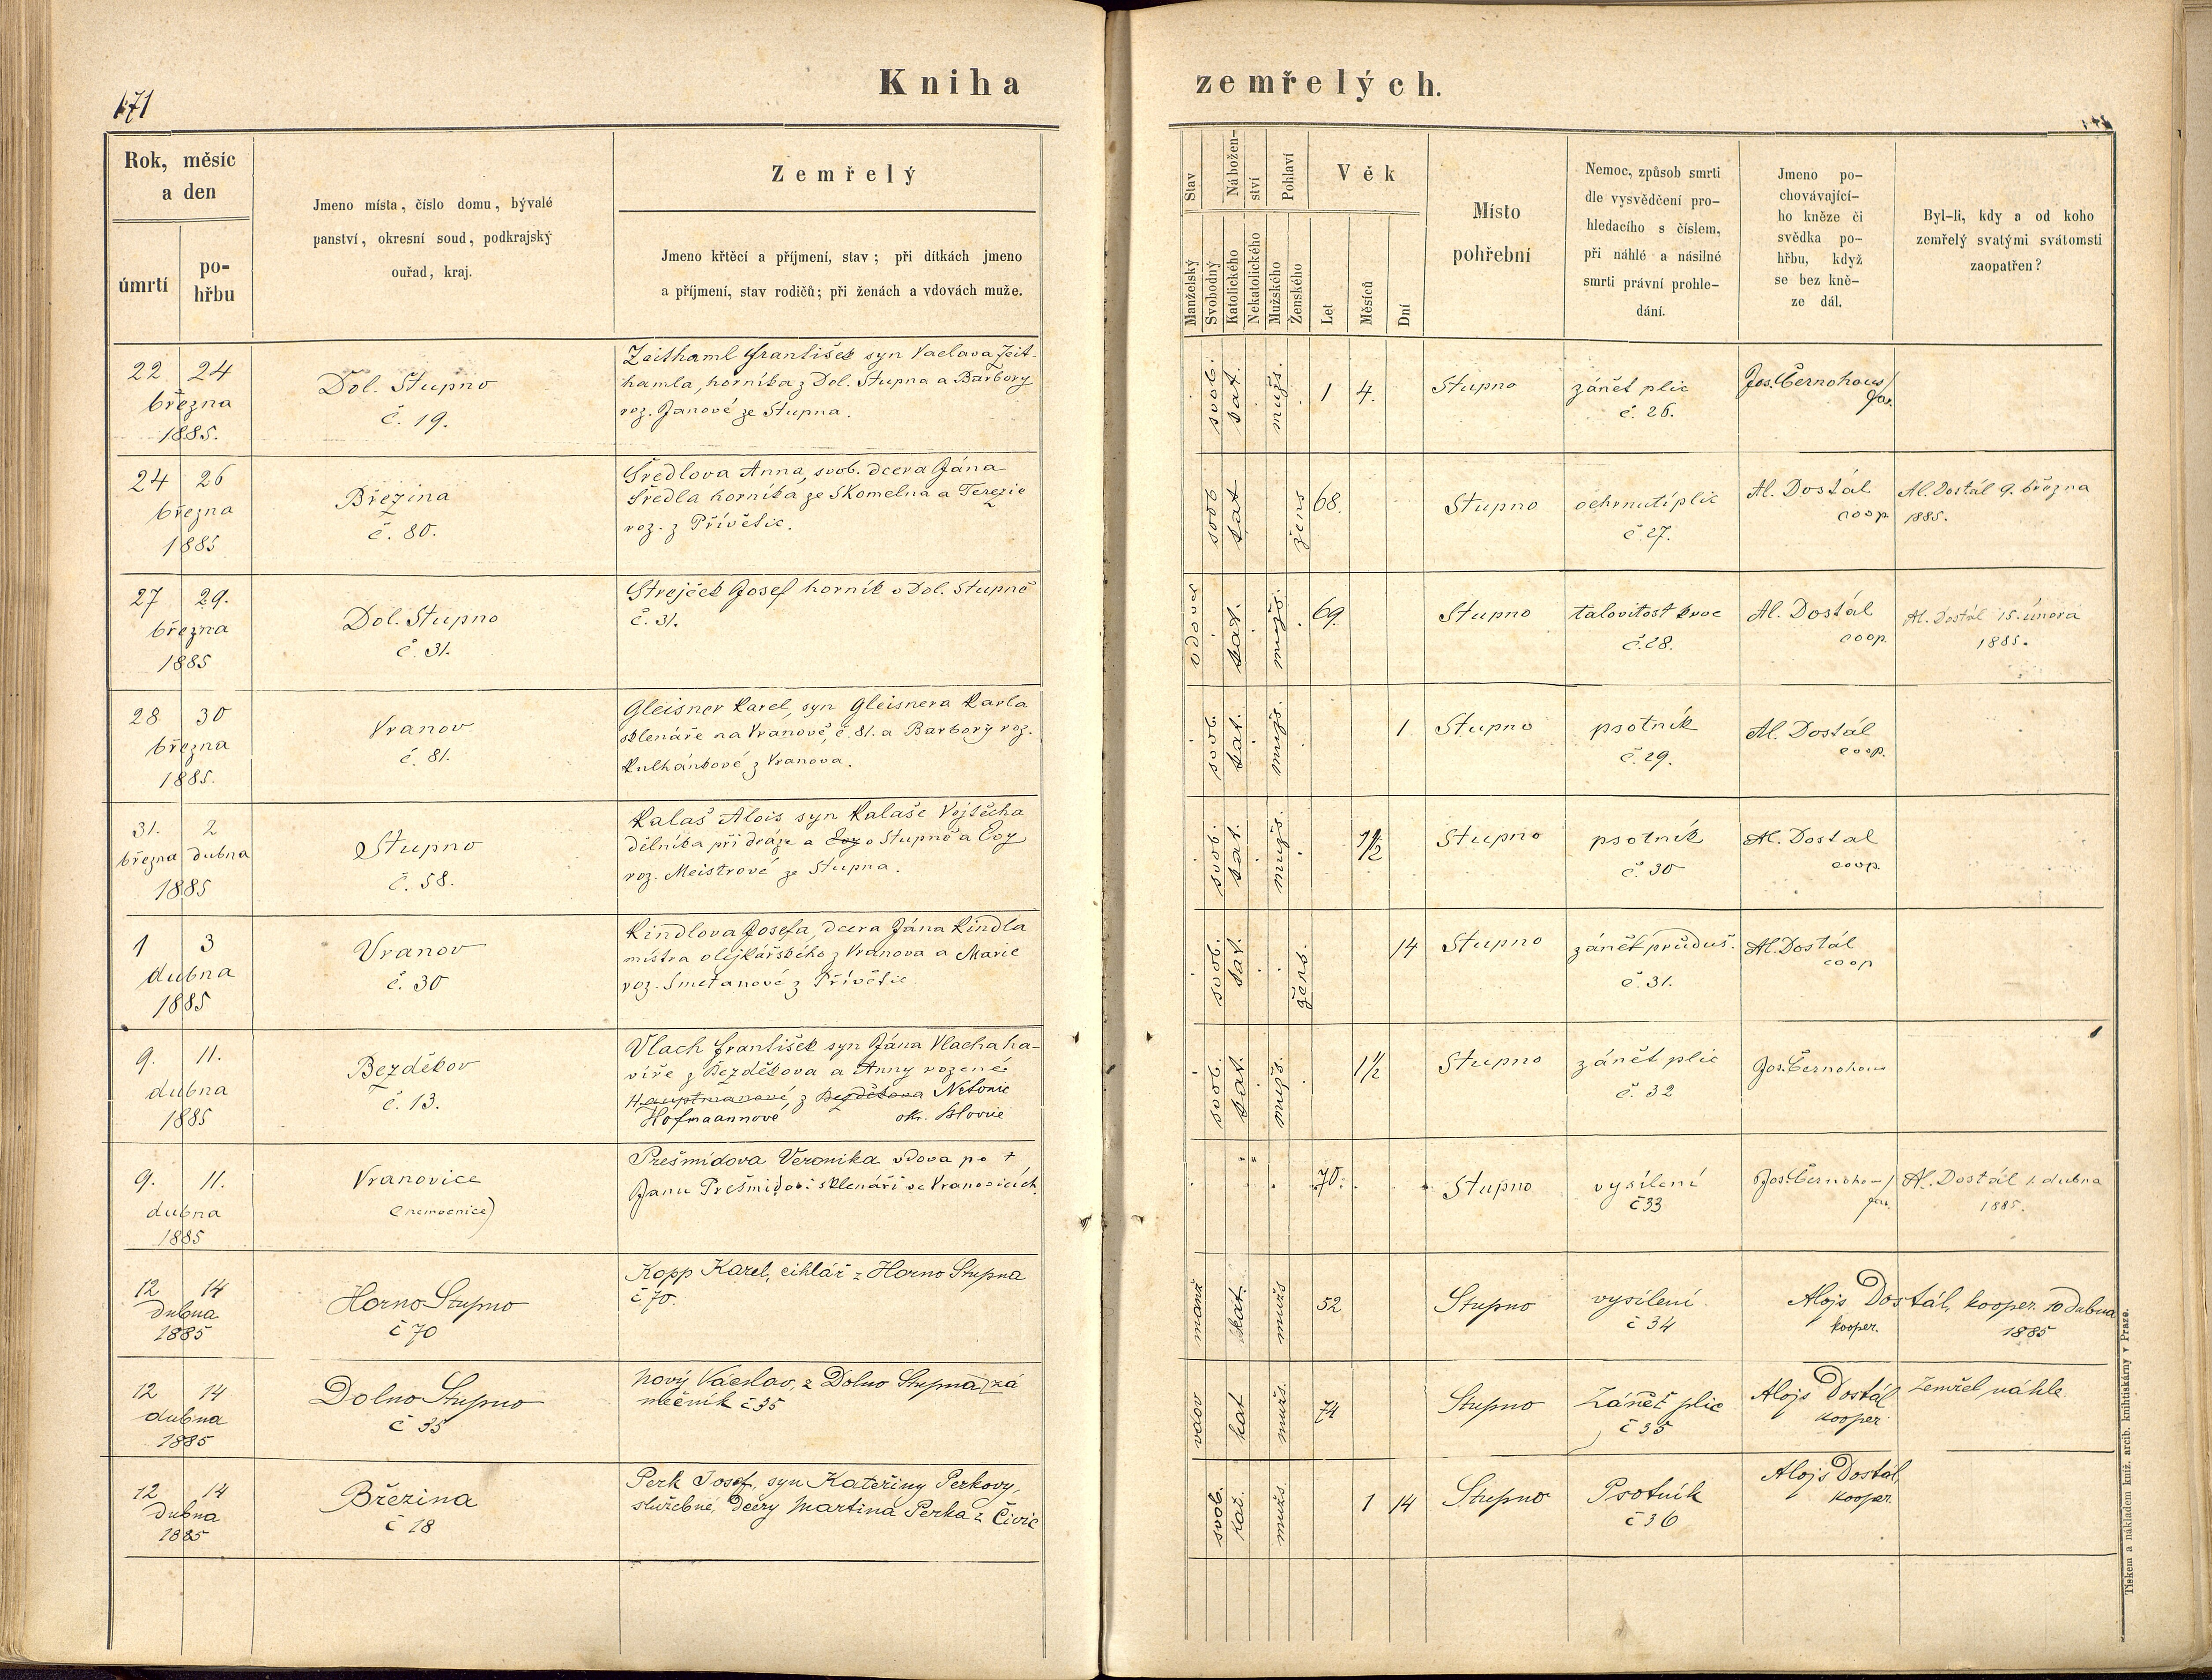 Kniha zemřelých.
171
Rok, měsíc
a den
úmrtí
po-
hřbu
Jmeno místa, číslo domu, bývalé
panství, okresní soud, podkrajský
ouřad, kraj.
Zemřelý
Jmeno křtěcí a příjmení, stav; při dítkách jmeno
a příjmení, stav rodičů; při ženách a vdovách muže.
Stav
Nábožen-
ství
Pohlaví
Věk
Manželský
Svobodný
Katolického
Nekatolického
Mužského
Ženského
Let
Měsíců
Dní
Místo
pohřební
Nemoc, způsob smrti
dle vysvědčení pro-
hledacího s číslem,
při náhlé a násilné
smrti právní prohle-
dání.
Jmeno po-
chovávající-
ho kněze či
svědka po-
hřbu, když
se bez kně-
ze dál.
Byl-li, kdy a od koho
zemřelý svatými svátomsti
zaopatřen?
22 24
března
1885.
Dol. Stupno
č. 19.
Zeithaml František syn Vaclava Zeit-
hamla, horníka z Dol. Stupna a Barbory
roz. Janové ze Stupna.
svob. kat. mužs. 1 4.
Stupno
zánět plic
č. 26.
Jos. Černohous
far.
24 26
března
1885
Březina
č. 80.
Šredlova Anna, svob. dcera Jána
Šredla horníka ze Skomelna a Terezie
roz. z Přívětic.
svob kat žens 68.
Stupno
ochrnutí plic
č. 27.
Al. Dostál
coop.
Al. Dostál 9. března
1885.
27 29.
března
1885
Dol. Stupno
č. 31.
Strejček Josef horník v Dol. Stupně
č. 31.
vdovec kat. mužs. 69.
Stupno
talovitost krve
č. 28.
Al. Dostál
coop.
Al. Dostál 15. února
1885.
28 30
března
1885.
Vranov
č. 81.
Gleisner Karel, syn Gleisnera Karla
sklenáře na Vranově, č. 81. a Barbory roz.
Kulhánkové z Vranova.
svob. kat. mužs. 1.
Stupno
psotník
č. 29.
Al. Dostál
coop.
31. 2
března dubna
1885
Stupno
č. 58.
Kalaš Alois syn Kalaše Vojtěcha
dělníka při dráze a Evy v Stupně a Evy
roz. Meistrové ze Stupna.
svob. kat. mužs. 1/2
Stupno
psotník
č. 30
Al. Dostal
coop.
1 3
dubna
1885
Vranov
č. 30
Kindlova Josefa, dcera Jána Kindla
mistra olejkářského z Vranova a Marie
roz. Smetanové z Přívětic.
svob. kat. žens. 14
Stupno
zánět průduš.
č. 31.
Al. Dostál
coop
9. 11.
dubna
1885
Bezděkov
č. 13.
Vlach František syn Jána Vlacha ha-
víře z Bezděkova a Anny rozené
Hauptmanové, z Bezděkova Netonic
Hofmaannové okr. Blovic
svob. kat. mužs. 1 1/2
Stupno
zánět plic
č. 32
Jos. Černohous
9. 11.
dubna
1885
Vranovice
(nemocnice)
Prešmidova Veronika vdova po †
Janu Prešmidovi sklenáři ve Vranovicích.
70.
Stupno
vysílení
č 33
Jos. Černohous
far.
Al. Dostál 1. dubna
1885.
12 14
dubna
1885
Horno Stupno
č 70
Kopp Karel, cihlář z Horno Stupna
č 70.
manž kat. mužs 52
Stupno
vysílení
č 34
Alojs Dostál, kooper. 10 dubna
kooper. 1885
12 14
dubna
1885
Dolno Stupno
č 35
Nový Václav, z Dolno Stupna, zá
mečník č 35
vdov kat mužs. 74
Stupno
Zánět plic
č 35
Alojs Dostál
kooper.
Zemřel náhle.
12 14
dubna
1885
Březina
č 18
Perk Josef, syn Kateřiny Perkovy,
služebné, dcery Martina Perka z Čivic
svob. kat. mužs. 1 14
Stupno
Psotník
č 36
Alojs Dostál
kooper.
Tiskem a nákladem kníž. arcib. knihtiskárny v Praze.